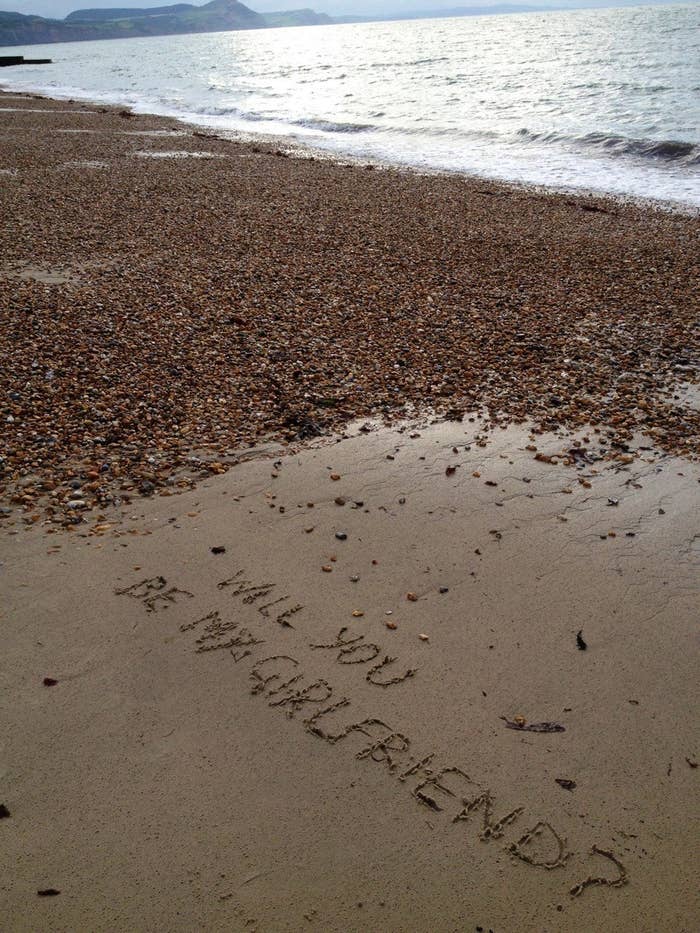 WILL YOU
BE MY GIRLFRIEND?